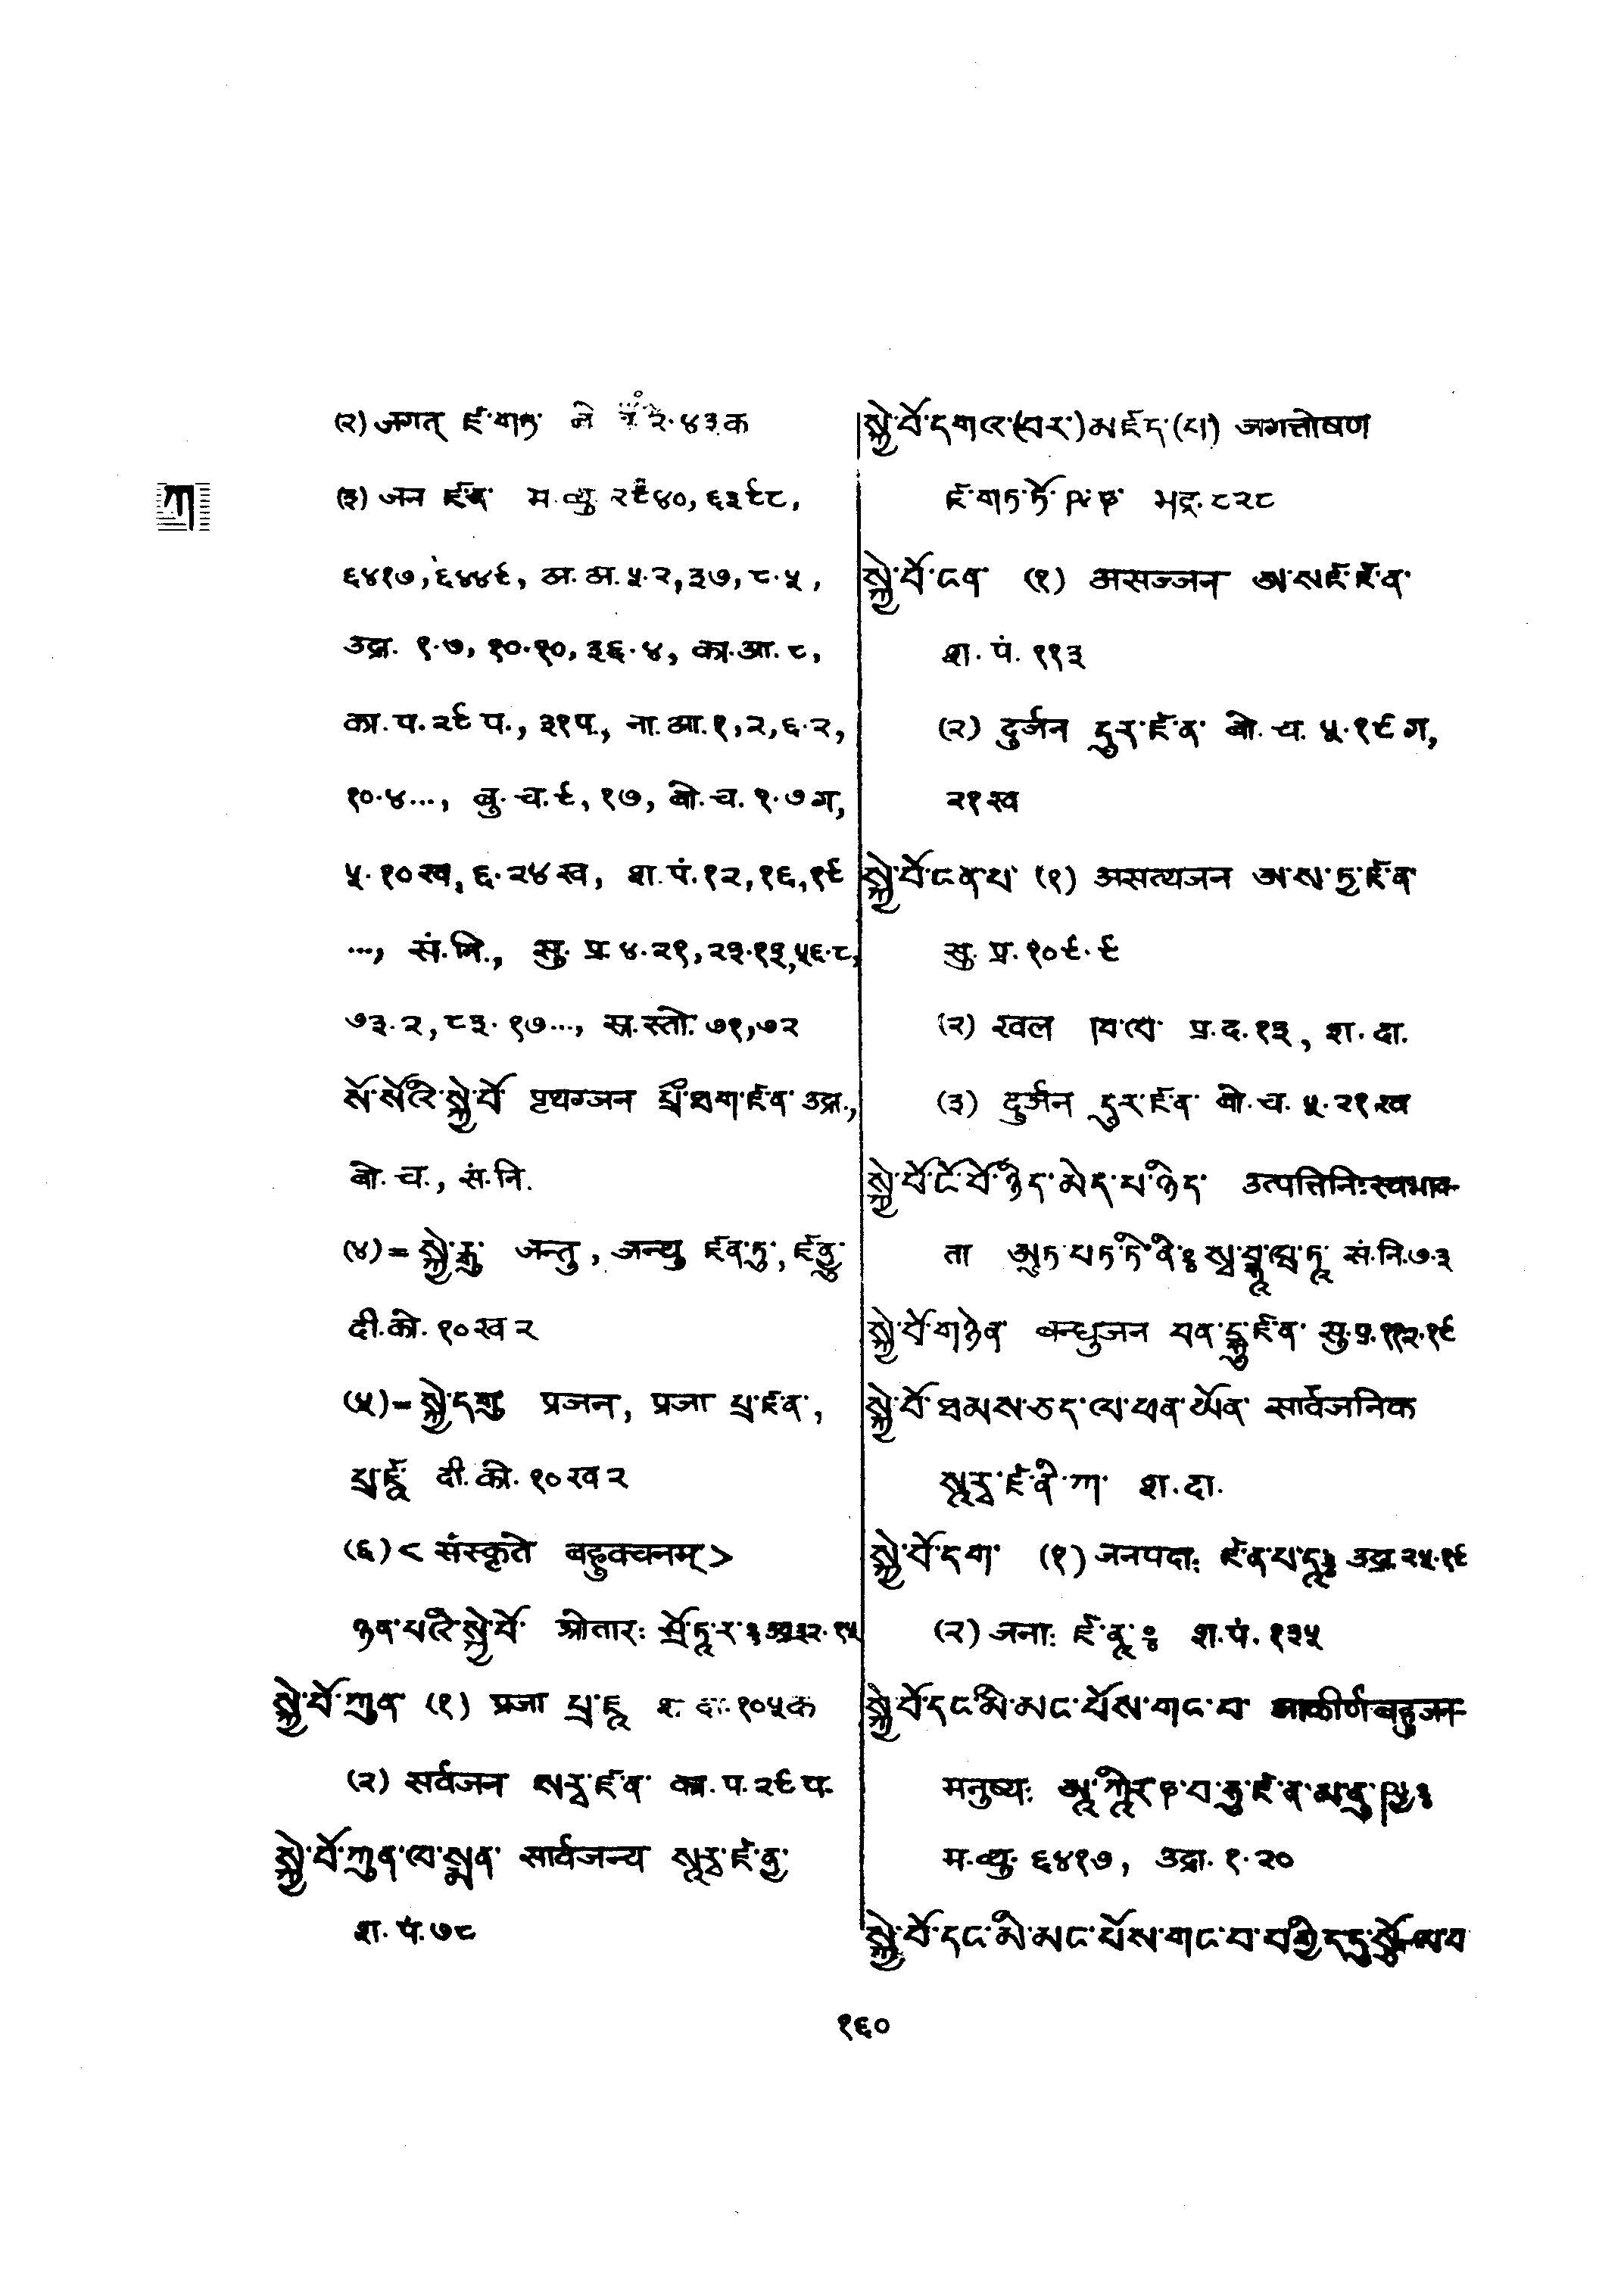 ཀ
(२) जगत् ཛ་གཏ་ २·४३ क
(३) जन ཛ་ན་ म.व्यु. २९४०, ६३९८,
६४१७, ६४४९, अ.अ. ५·२, ३७, ८·५,
उद्रा. १·७, १०·१०, ३६·४, का.आ. ८,
का.प. २९ प., ३१प., ना.आ. १, २, ६·२,
१०·४..., बु.च. ९, १७, बो.च. १·७ ग,
५·१० ख, ६·२४ ख, श.पं. १२, १६, १९
..., सं.नि., सु.प्र. ४·२१, २३·१३, ५६·८,
७३·२, ८३·१७..., स्र.स्तो. ७१, ७२
སོ་སོའི་སྐྱེ་བོ་ पृथग्जन པྲྀ་ཐག་ཛ་ན་ उद्रा.,
बो.च., सं.नि.
(४) = སྐྱེ་རྒུ་ जन्तु, जन्यु ཛ་ནྟུ་, ཛ་ནྱུ་
दी.को. १० ख २
(५) = སྐྱེ་དགུ་ प्रजन, प्रजा པྲ་ཛ་ན་,
པྲ་ཛཱ་ दी.को. १० ख २
(६) < संस्कृते बहुवचनम् >
ཉན་པའི་སྐྱེ་བོ་ श्रोतारः ཤྲོ་ཏཱ་ར་ཿ उद्रा. ३२·१५
སྐྱེ་བོ་ཀུན་ (१) प्रजा པྲ་ཛཱ་ श.दा. १०५ क
(२) सर्वजन སརྦ་ཛ་ན་ का.प. २९ प.
སྐྱེ་བོ་ཀུན་ལ་སྨན་ सार्वजन्य སཱརྦ་ཛ་ནྱ་
श.पं. ७८
སྐྱེ་བོ་དགའ་(བར་)མཛད་(པ་) जगत्तोषण
ཛ་གཏ་ཏོ་ཥ་ཎ་ भद्र. ८२८
སྐྱེ་བོ་ངན་ (१) असज्जन ཨ་སཛ་ཛ་ན་
श.पं. ११३
(२) दुर्जन དུར་ཛ་ན་ बो.च. ५·१९ ग,
२१ ख
སྐྱེ་བོ་ངན་པ་ (१) असत्यजन ཨ་ས་ཏྱ་ཛ་ན་
सु.प्र. १०९·९
(२) खल ཁ་ལ་ प्र.द. १३, श.दा.
(३) दुर्जन དུར་ཛ་ན་ बो.च. ५·२१ ख
སྐྱེ་བོ་ངོ་བོ་ཉིད་མེད་པ་ཉིད་ उत्पत्तिनिःस्वभाव-
ता ཨུཏ་པཏ་ཏི་ནིཿསྭ་བྷཱ་ཝ་ཏཱ་ सं.नि. ७·३
སྐྱེ་བོ་གཉེན་ बन्धुजन བན་དྷུ་ཛ་ན་ सु.प्र. ११२·१९
སྐྱེ་བོ་ཐམས་ཅད་ལ་ཕན་ཡོན་ सार्वजनिक
སཱརྦ་ཛ་ནི་ཀ་ श.दा.
སྐྱེ་བོ་དག་ (१) जनपदाः ཛ་ན་པ་དཱཿ उद्रा. २५·१९
(२) जनाः ཛ་ནཱ་ཿ श.पं. १३५
སྐྱེ་བོ་དང་མི་མང་པོས་གང་བ་ आकीर्णबहुजन-
मनुष्यः ཨཱ་ཀཱིར་ཎ་བ་ཧུ་ཛ་ན་མ་ནུ་ཥྱཿ
म.व्यु. ६४१७, उद्रा. १·२०
སྐྱེ་བོ་དང་མི་མང་པོས་གང་བ་བགྱིད་དུ་སྩོལ་བ
१६०